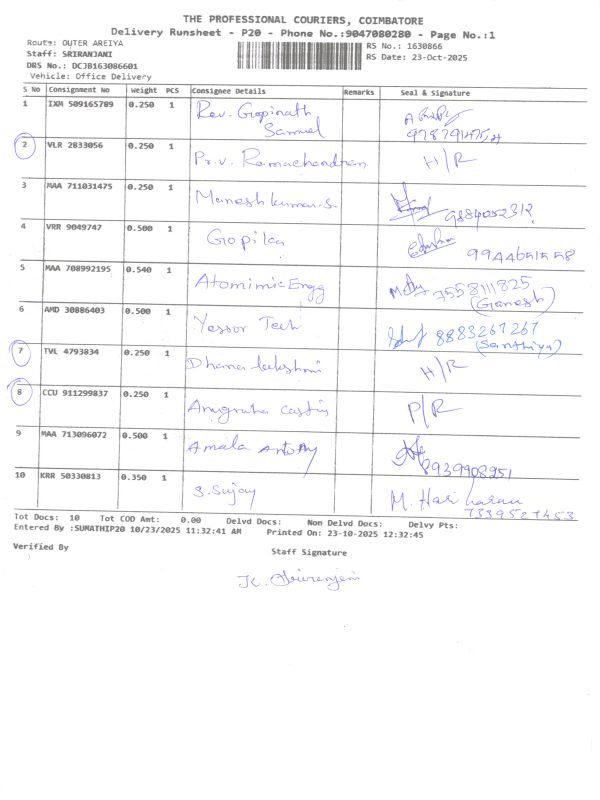 THE PROFESSIONAL COURIERS, COIMBATORE
Delivery Runsheet - P20 - Phone No.:9047080280 - Page No.:1
Route: OUTER AREIYA
RS No.: 1630866
Staff: SRIRANJANI
RS Date: 23-Oct-2025
DRS No.: DCJB163086601
Vehicle: Office Delivery
S No Consignment No Weight PCS Consignee Details Remarks Seal & Signature
1 IXM 509165789 0.250 1 Rev. Gopinath Samuel
2 VLR 2833056 0.250 1 Pr.V. Ramachandran H/R
3 MAA 711031475 0.250 1 Manesh kumar.S. 9884052312
4 VRR 9049747 0.500 1 Gopika 9944651558
5 MAA 708992195 0.540 1 Atomimic Engg 7558111825
(Ganesh)
6 AMD 30886403 0.500 1 Yessor Tech 8883267267
(Santhiya)
7 TVL 4793834 0.250 1 Dhana lakshmi H/R
8 CCU 911299837 0.250 1 Anugraha P/R
9 MAA 713096072 0.500 1 Amala Antony 8939908951
10 KRR 50330813 0.350 1 S. Sujay M. Hari haran
7339527453
Tot Docs: 10 Tot COD Amt: 0.00 Delvd Docs: Non Delvd Docs: Delvy Pts:
Entered By :SUMATHIP20 10/23/2025 11:32:41 AM Printed On: 23-10-2025 12:32:45
Verified By
Staff Signature